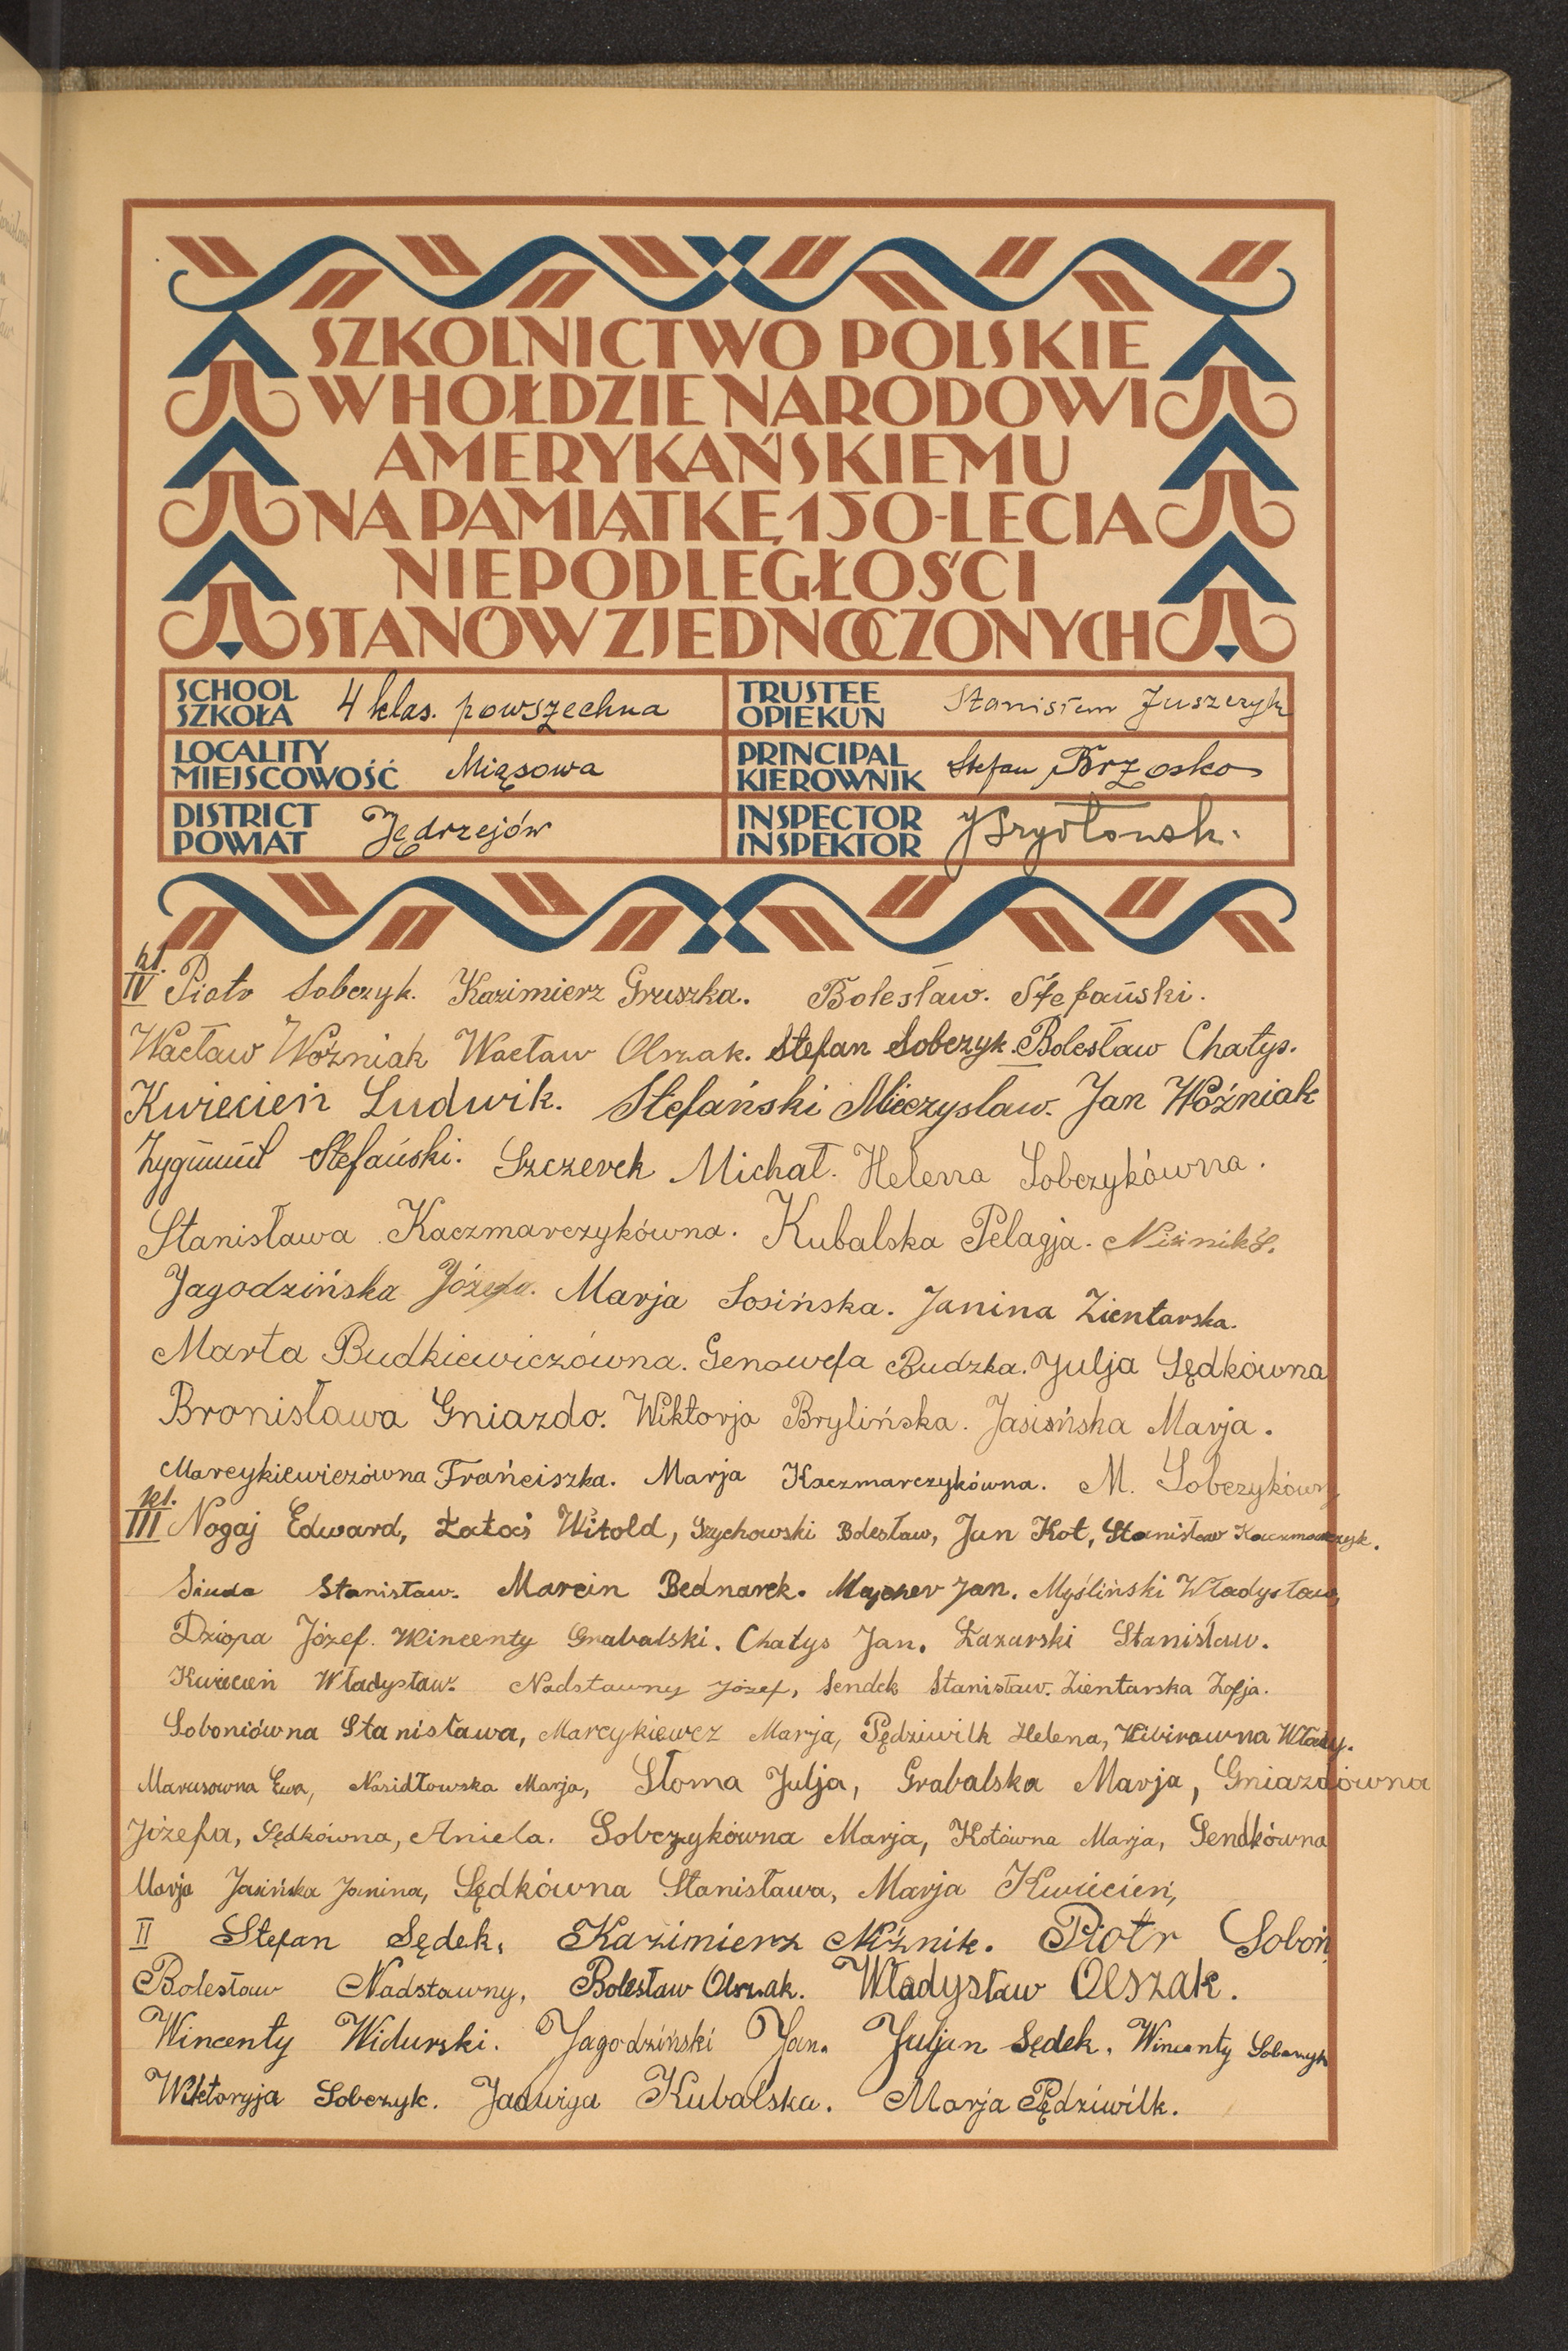 SZKOLNICTWO POLSKIE
W HOŁDZIE NARODOWI
AMERYKAŃSKIEMU
NA PAMIĄTKĘ 150-LECIA
NIEPODLEGŁOŚCI
STANÓW ZJEDNOCZONYCH
SCHOOL SZKOŁA 4 klas. powszechna
TRUSTEE OPIEKUN Stanisław Juszczyk
LOCALITY MIEJSCOWOŚĆ Miąsowa
PRINCIPAL KIEROWNIK Stefan Brzosko
DISTRICT POWIAT Jędrzejów
INSPECTOR INSPEKTOR
kl. IV Piotr Sobczyk. Kazimierz Gruszka. Bolesław. Stefański.
Wacław Woźniak Wacław Olszak. Stefan Sobczyk. Bolesław Chatys.
Kwiecień Ludwik. Stefański Mieczysław. Jan Woźniak
Zygmunt Stefański. Szczerek Michał. Helena Sobczykówna.
Stanisława Kaczmarczykówna. Kubalska Pelagja. Niżnik S.
Jagodzińska Józefa. Marja Sosińska. Janina Zientarska.
Marta Budkiewiczówna. Genowefa Budzka. Julja Sędkówna
Bronisława Gniazdo. Wiktorja Brylińska. Jasisńska Marja.
Marcykiewiczówna Frańciszka. Marja Kaczmarczykówna. M. Sobczykówn
kl. III Nogaj Edward, Łatoś Witold, Szychowski Bolesław, Jan Kot, Stanisław Kaczmarczyk.
Siuda Stanisław. Marcin Bednarek. Majcher Jan. Myśliński Władysław,
Dziopa Józef. Wincenty Grabalski. Chatys Jan. Łazarski Stanisław.
Kwiecień Władysław. Nadstawny Józef, Sendek Stanisław. Zientarska Zofja.
Soboniówna Stanisława, Marcykiewcz Marja, Pędziwilk Helena, Kibirowna Włady.
Marusowna Ewa, Nasidłowska Marja, Słoma Julja, Grabalska Marja, Gniazdówna
Józefa, Sędkówna, Aniela. Sobczykówna Marja, Kotówna Marja, Sendkówna
Marja Jasińska Janina, Sędkówna Stanisława, Marja Kwiecień,
II Stefan Sędek, Kazimierz Niżnik. Piotr Soboń
Bolesław Nadstawny, Bolesław Olszak. Władysław Olszak.
Wincenty Widurski. Jagodziński Jan. Juljan Sędek. Wincenty Sobczyk
Wiktoryja Sobczyk. Jadwiga Kubalska. Marja Pędziwilk.